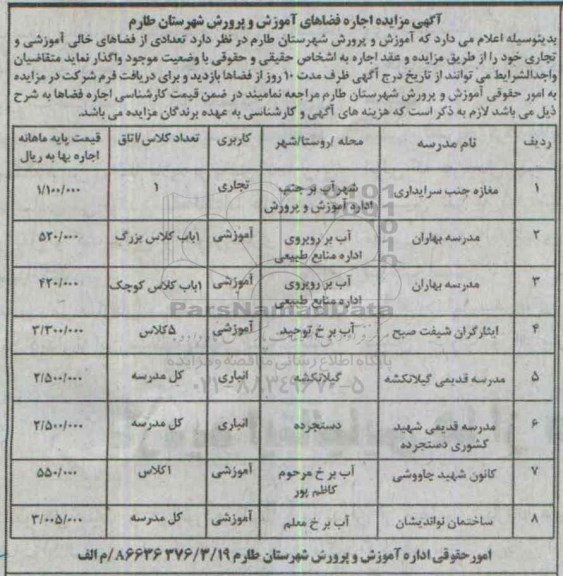 آگهی مزایده اجاره فضاهای آموزش و پرورش شهرستان طارم
بدینوسیله اعلام می دارد که آموزش و پرورش شهرستان طارم در نظر دارد تعدادی از فضاهای خالی آموزشی و
تجاری خود را از طریق مزایده و عقد اجاره به اشخاص حقیقی و حقوقی با وضعیت موجود واگذار نماید متقاضیان
واجدالشرایط می توانند از تاریخ درج آگهی ظرف مدت ۱۰ روز از فضاها بازدید و برای دریافت فرم شرکت در مزایده
به امور حقوقی آموزش و پرورش شهرستان طارم مراجعه نمایند در ضمن قیمت کارشناسی اجاره فضاها به شرح
ذیل می باشد لازم به ذکر است که هزینه های آگهی و کارشناسی به عهده برندگان مزایده می باشد.
ردیف نام مدرسه محله /روستا/شهر کاربری تعداد کلاس/اتاق قیمت پایه ماهانه اجاره بها به ریال
۱ مغازه جنب سرایداری شهر آب بر جنب اداره آموزش و پرورش تجاری ۱ ۱/۱۰۰/۰۰۰
۲ مدرسه بهاران آب بر روبروی اداره منابع طبیعی آموزشی ۱باب کلاس بزرگ ۵۲۰/۰۰۰
۳ مدرسه بهاران آب بر روبروی اداره منابع طبیعی آموزشی ۱باب کلاس کوچک ۴۲۰/۰۰۰
۴ ایثارگران شیفت صبح آب بر خ توحید آموزشی ۵کلاس ۳/۳۰۰/۰۰۰
۵ مدرسه قدیمی گیلانکشه گیلانکشه انباری کل مدرسه ۲/۵۰۰/۰۰۰
۶ مدرسه قدیمی شهید کشوری دستجرده دستجرده انباری کل مدرسه ۲/۵۰۰/۰۰۰
۷ کانون شهید چاووشی آب بر خ مرحوم کاظم پور آموزشی ۱کلاس ۵۵۰/۰۰۰
۸ ساختمان نواندیشان آب بر خ معلم آموزشی کل مدرسه ۳/۰۰۵/۰۰۰
امور حقوقی اداره آموزش و پرورش شهرستان طارم ۳۷۶/۳/۱۹ ۸۶۶۳۶/م الف
ParsNamadData
پایگاه اطلاع رسانی مناقصه و مزایده
۰۲۱-۸۸۳۴۹۶۷۰-۵